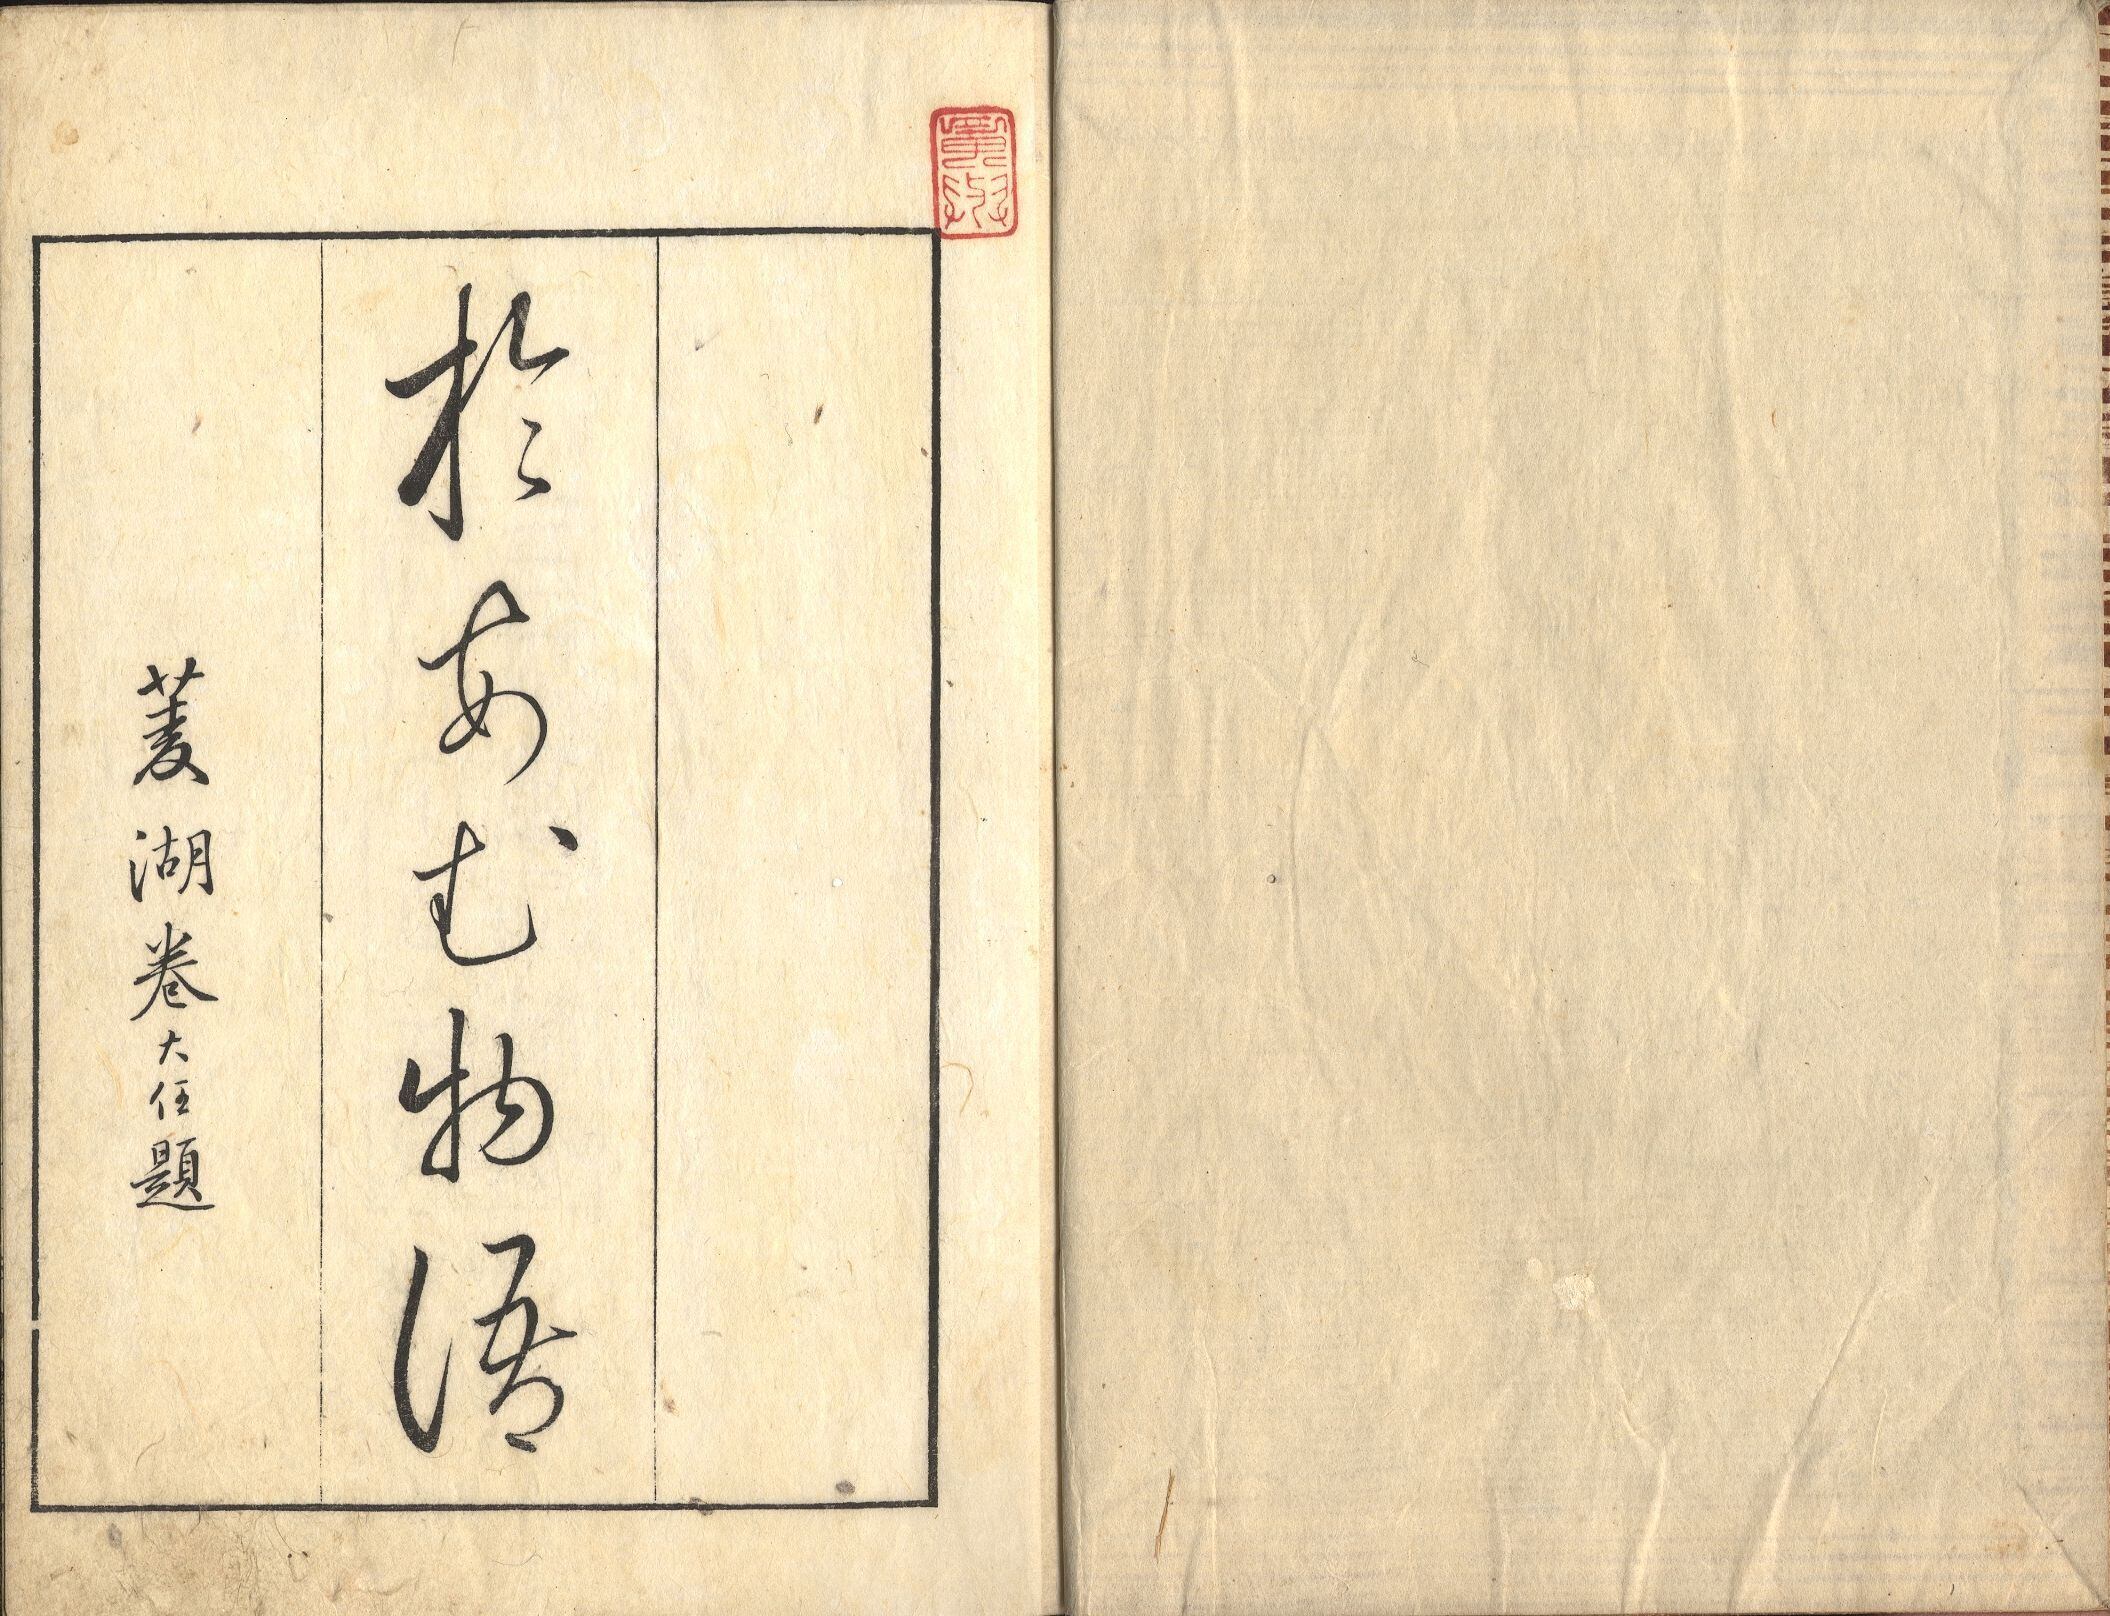 於あむ物語
菱湖巻大任題